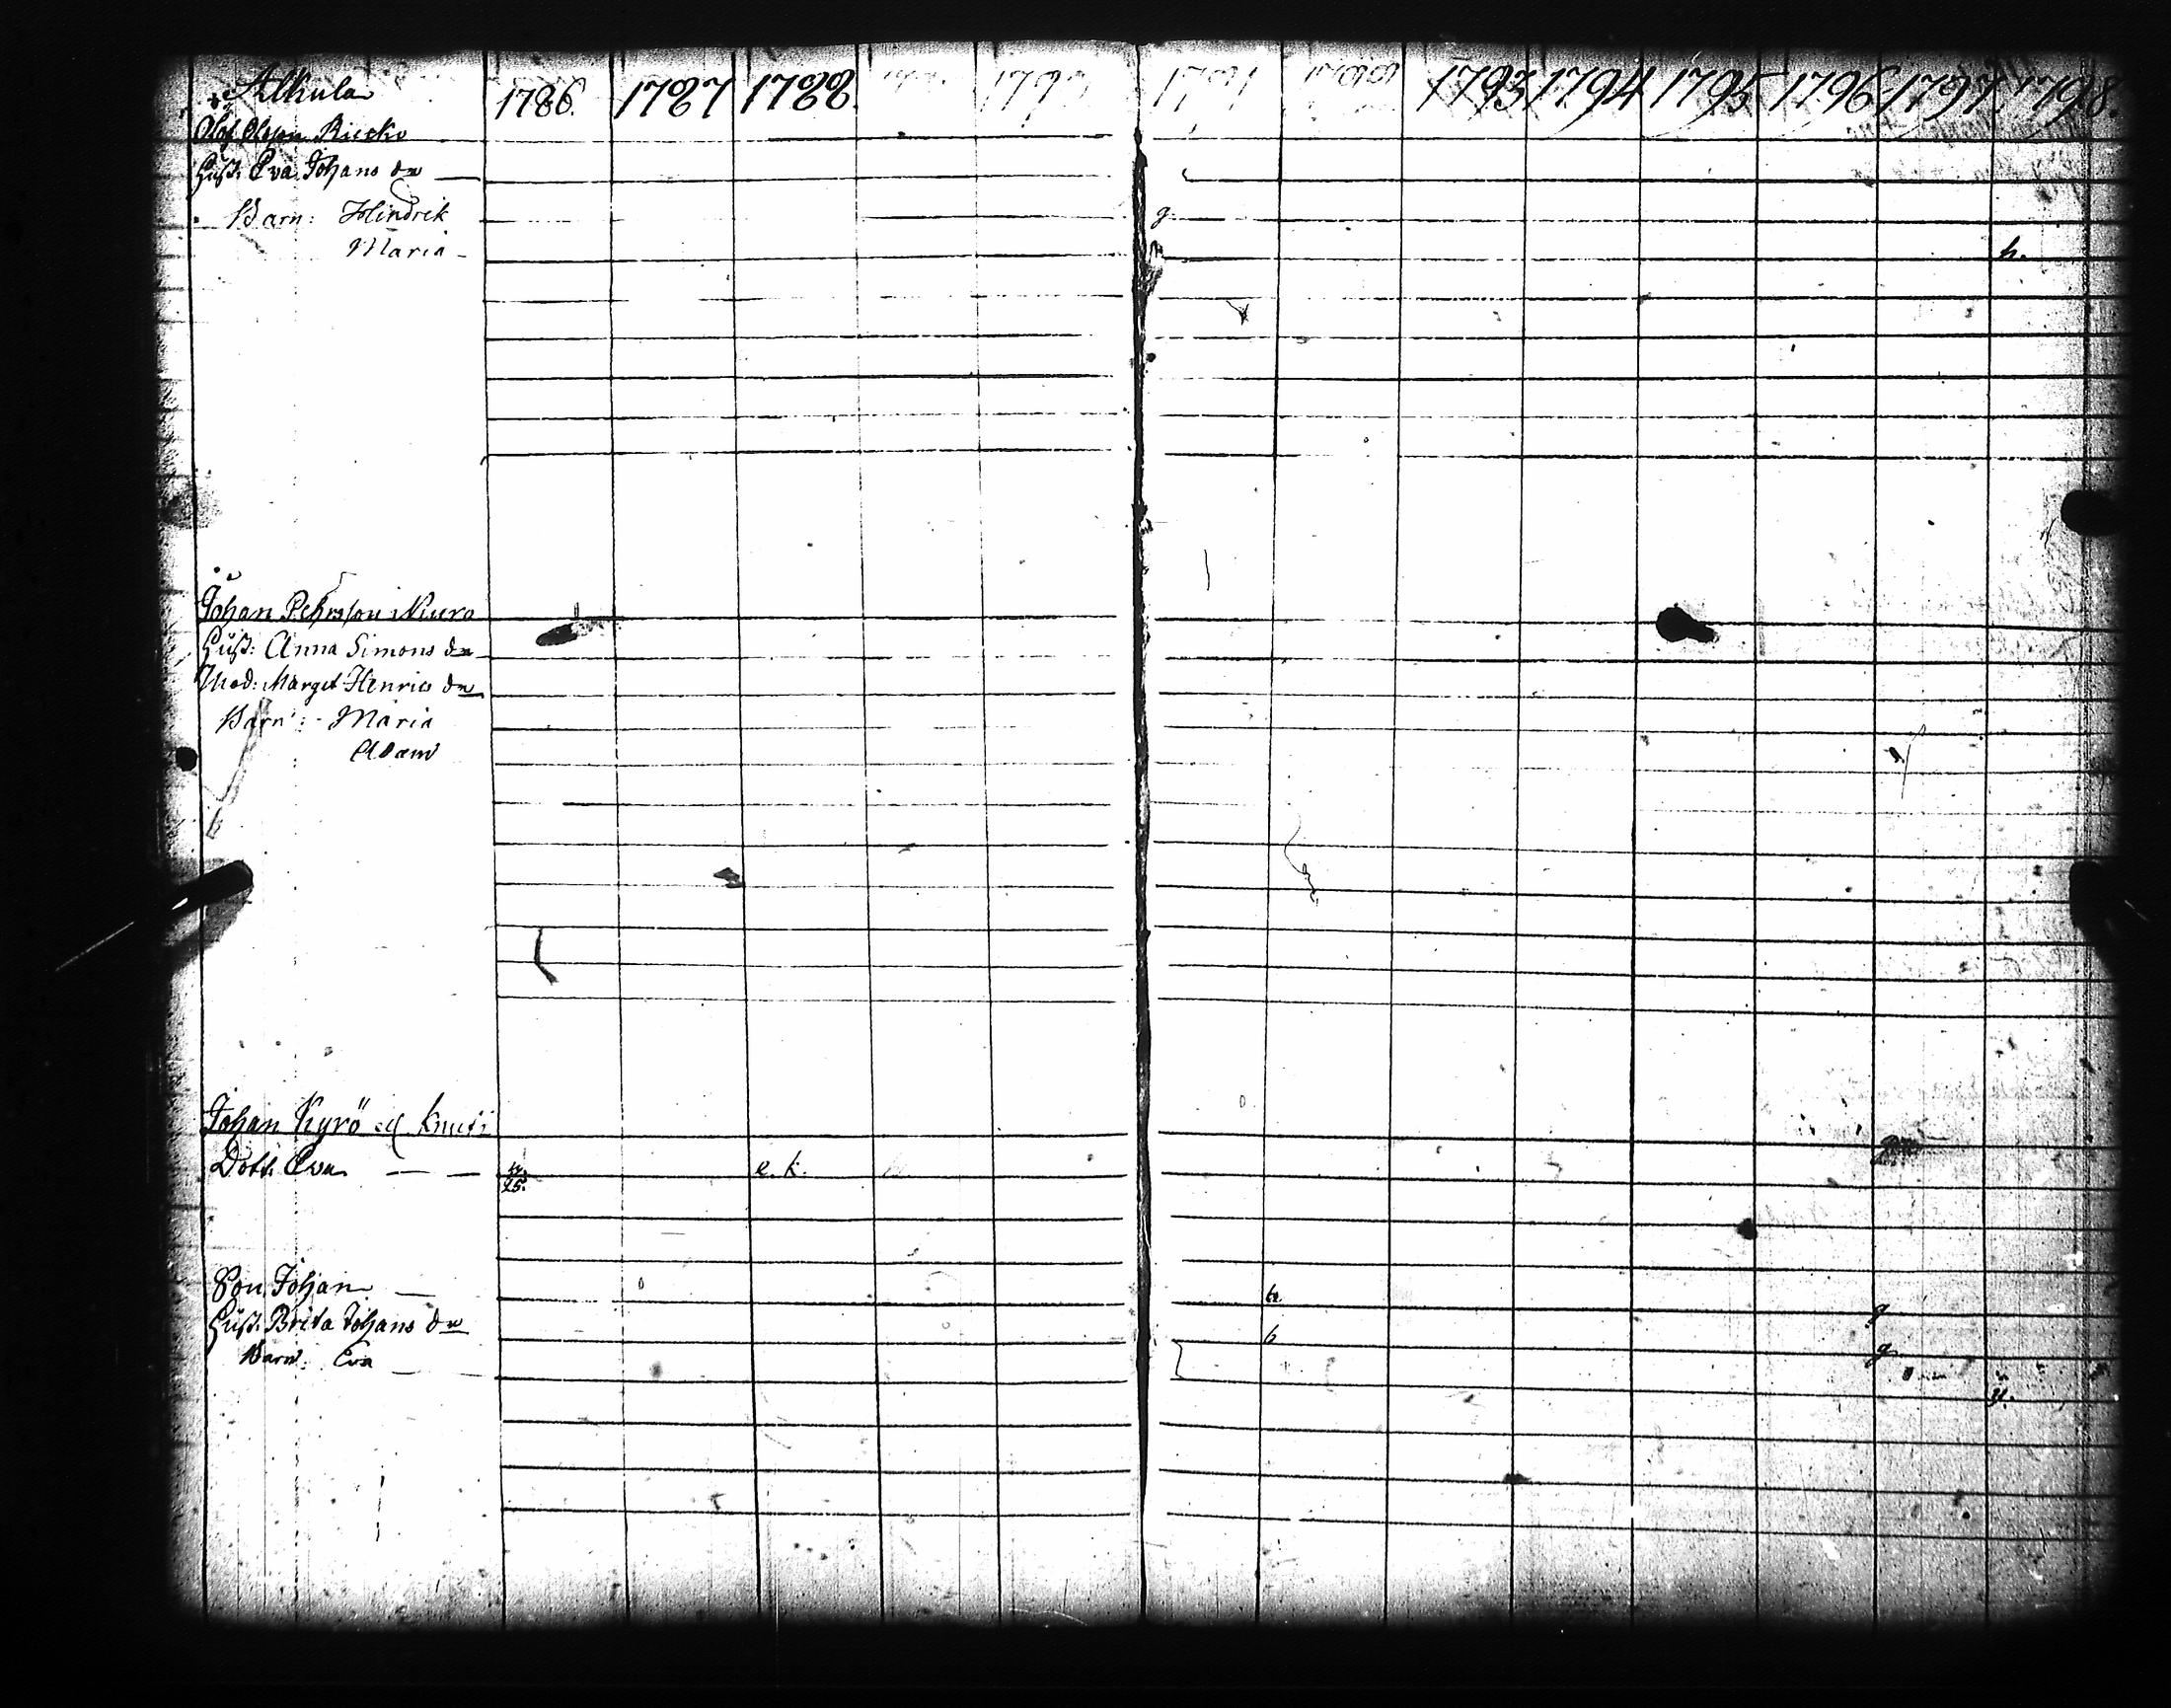 Alkula 1786. 1787 1788. 1791 1793 1794 1795 1796 1797. 1798.
Olof Olsson Riecko
Hust: Eva Johans dr
Barn: Hindrik g
Maria h.
Johan Pehrsson Niuro
Hust: Anna Simons dr
Mod: Marget Henrics dr
Barn: Maria
Adam
Johan Kyrö
Dott. Eva e. k.
25.
Son Johan h. g
Hust. Brita Johans dr h g
Barn: Eva